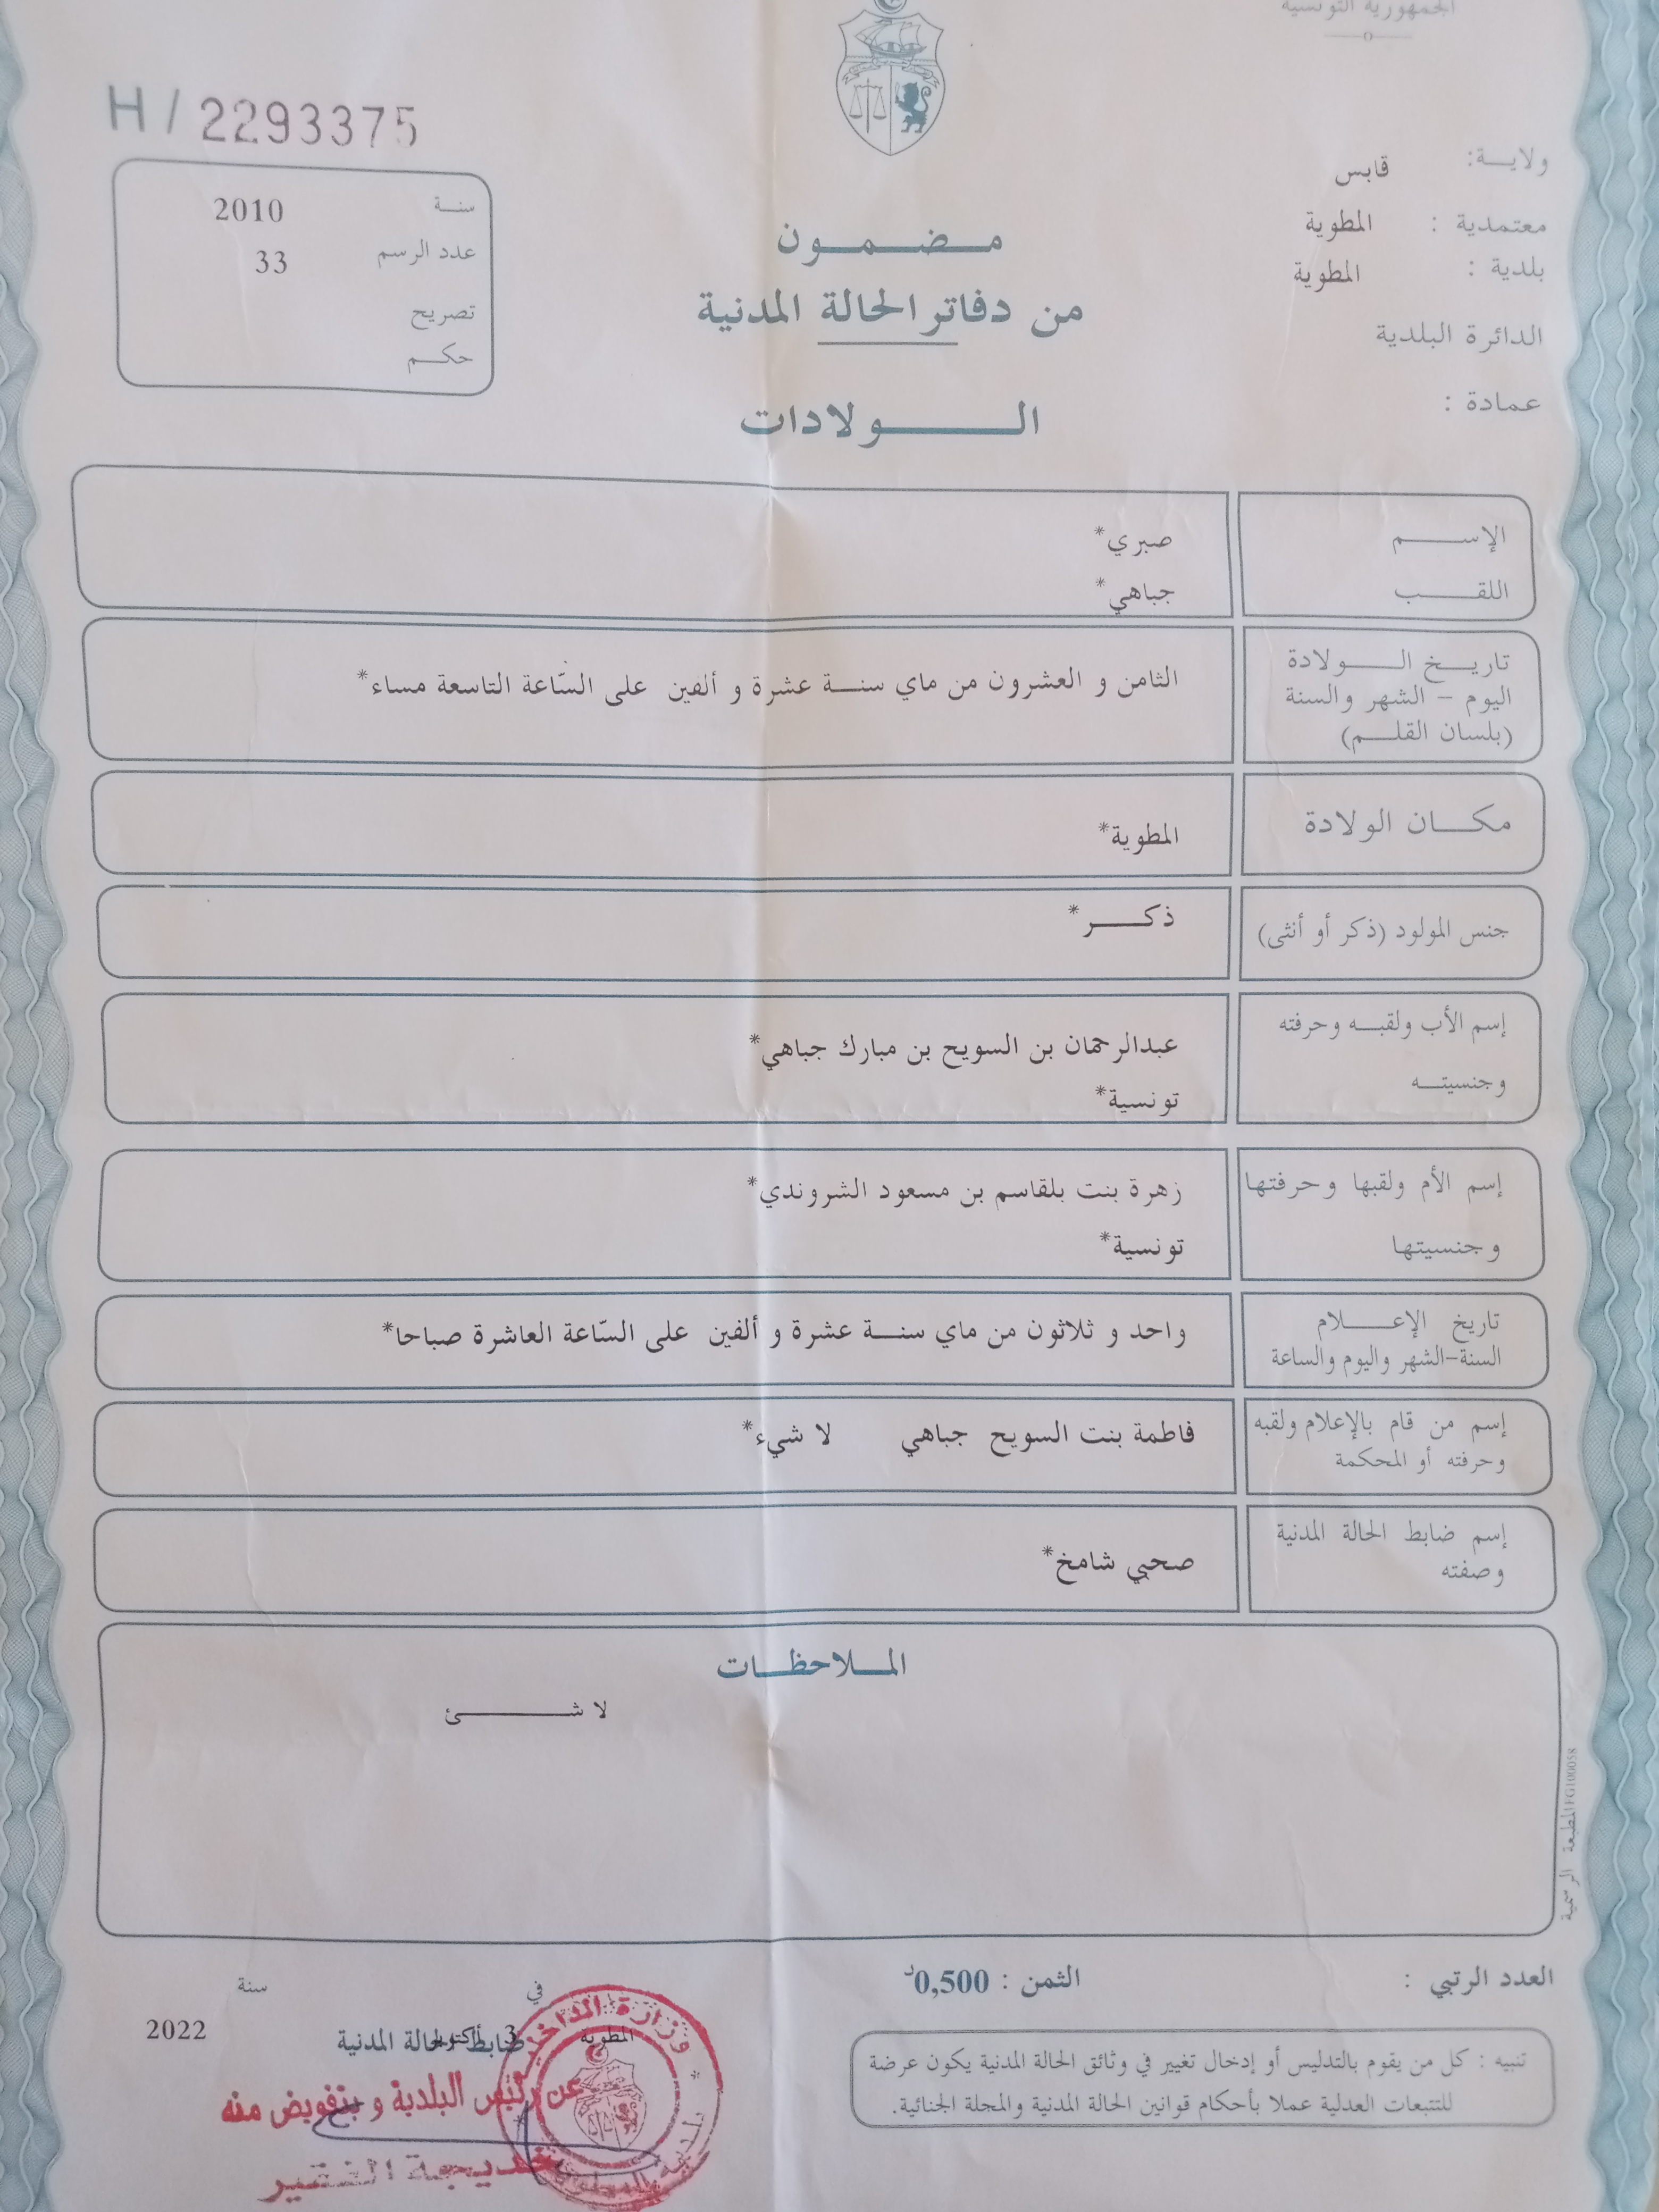 الجمهورية التونسية
H / 2293375
ولايـــة: قابس
معتمدية : المطوية
بلدية : المطوية
الدائرة البلدية
عمادة :
سنــة 2010
عدد الرسم 33
تصريح
حكــم
مــضــمــون
من دفاتر الحالة المدنية
الــــولادات
الإســــم صبري*
اللقــــب جباهي*
تاريــخ الــــولادة
اليوم - الشهر والسنة
(بلسان القلــم)
الثامن و العشرون من ماي سنــة عشرة و ألفين على السّاعة التاسعة مساء*
مكــان الولادة المطوية*
جنس المولود (ذكر أو أنثى) ذكــــر*
إسم الأب ولقبــه وحرفته
وجنسيتــه
عبدالرحمان بن السويح بن مبارك جباهي*
تونسية*
إسم الأم ولقبها وحرفتها
وجنسيتها
زهرة بنت بلقاسم بن مسعود الشروندي*
تونسية*
تاريخ الإعــــلام
السنة-الشهر واليوم والساعة
واحد و ثلاثون من ماي سنــة عشرة و ألفين على السّاعة العاشرة صباحا*
إسم من قام بالإعلام ولقبه
وحرفته أو المحكمة
فاطمة بنت السويح جباهي لا شيء*
إسم ضابط الحالة المدنية
وصفته
صحبي شامخ*
المــلاحظــات
لا شــــــئ
المطبعة الرسمية FG100058
العدد الرتبي :
الثمن : 0,500د
تنبيه : كل من يقوم بالتدليس أو إدخال تغيير في وثائق الحالة المدنية يكون عرضة
للتتبعات العدلية عملا بأحكام قوانين الحالة المدنية والمجلة الجنائية.
في سنة
المطوية 3 أكتوبر 2022
ضابط الحالة المدنية
عن رئيس البلدية و بتفويض منه
خديجة الفقير
وزارة الداخلية
بلدية المطوية